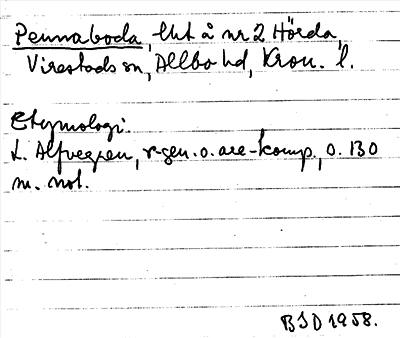 Pennaboda, lht å nr 2 Hörda,
Virestads sn, Allbo hd, Kron. l.
Etymologi:
L. Alfvegren, r-gen. o. are-komp., o. 130
m. not.
BSD 1958.